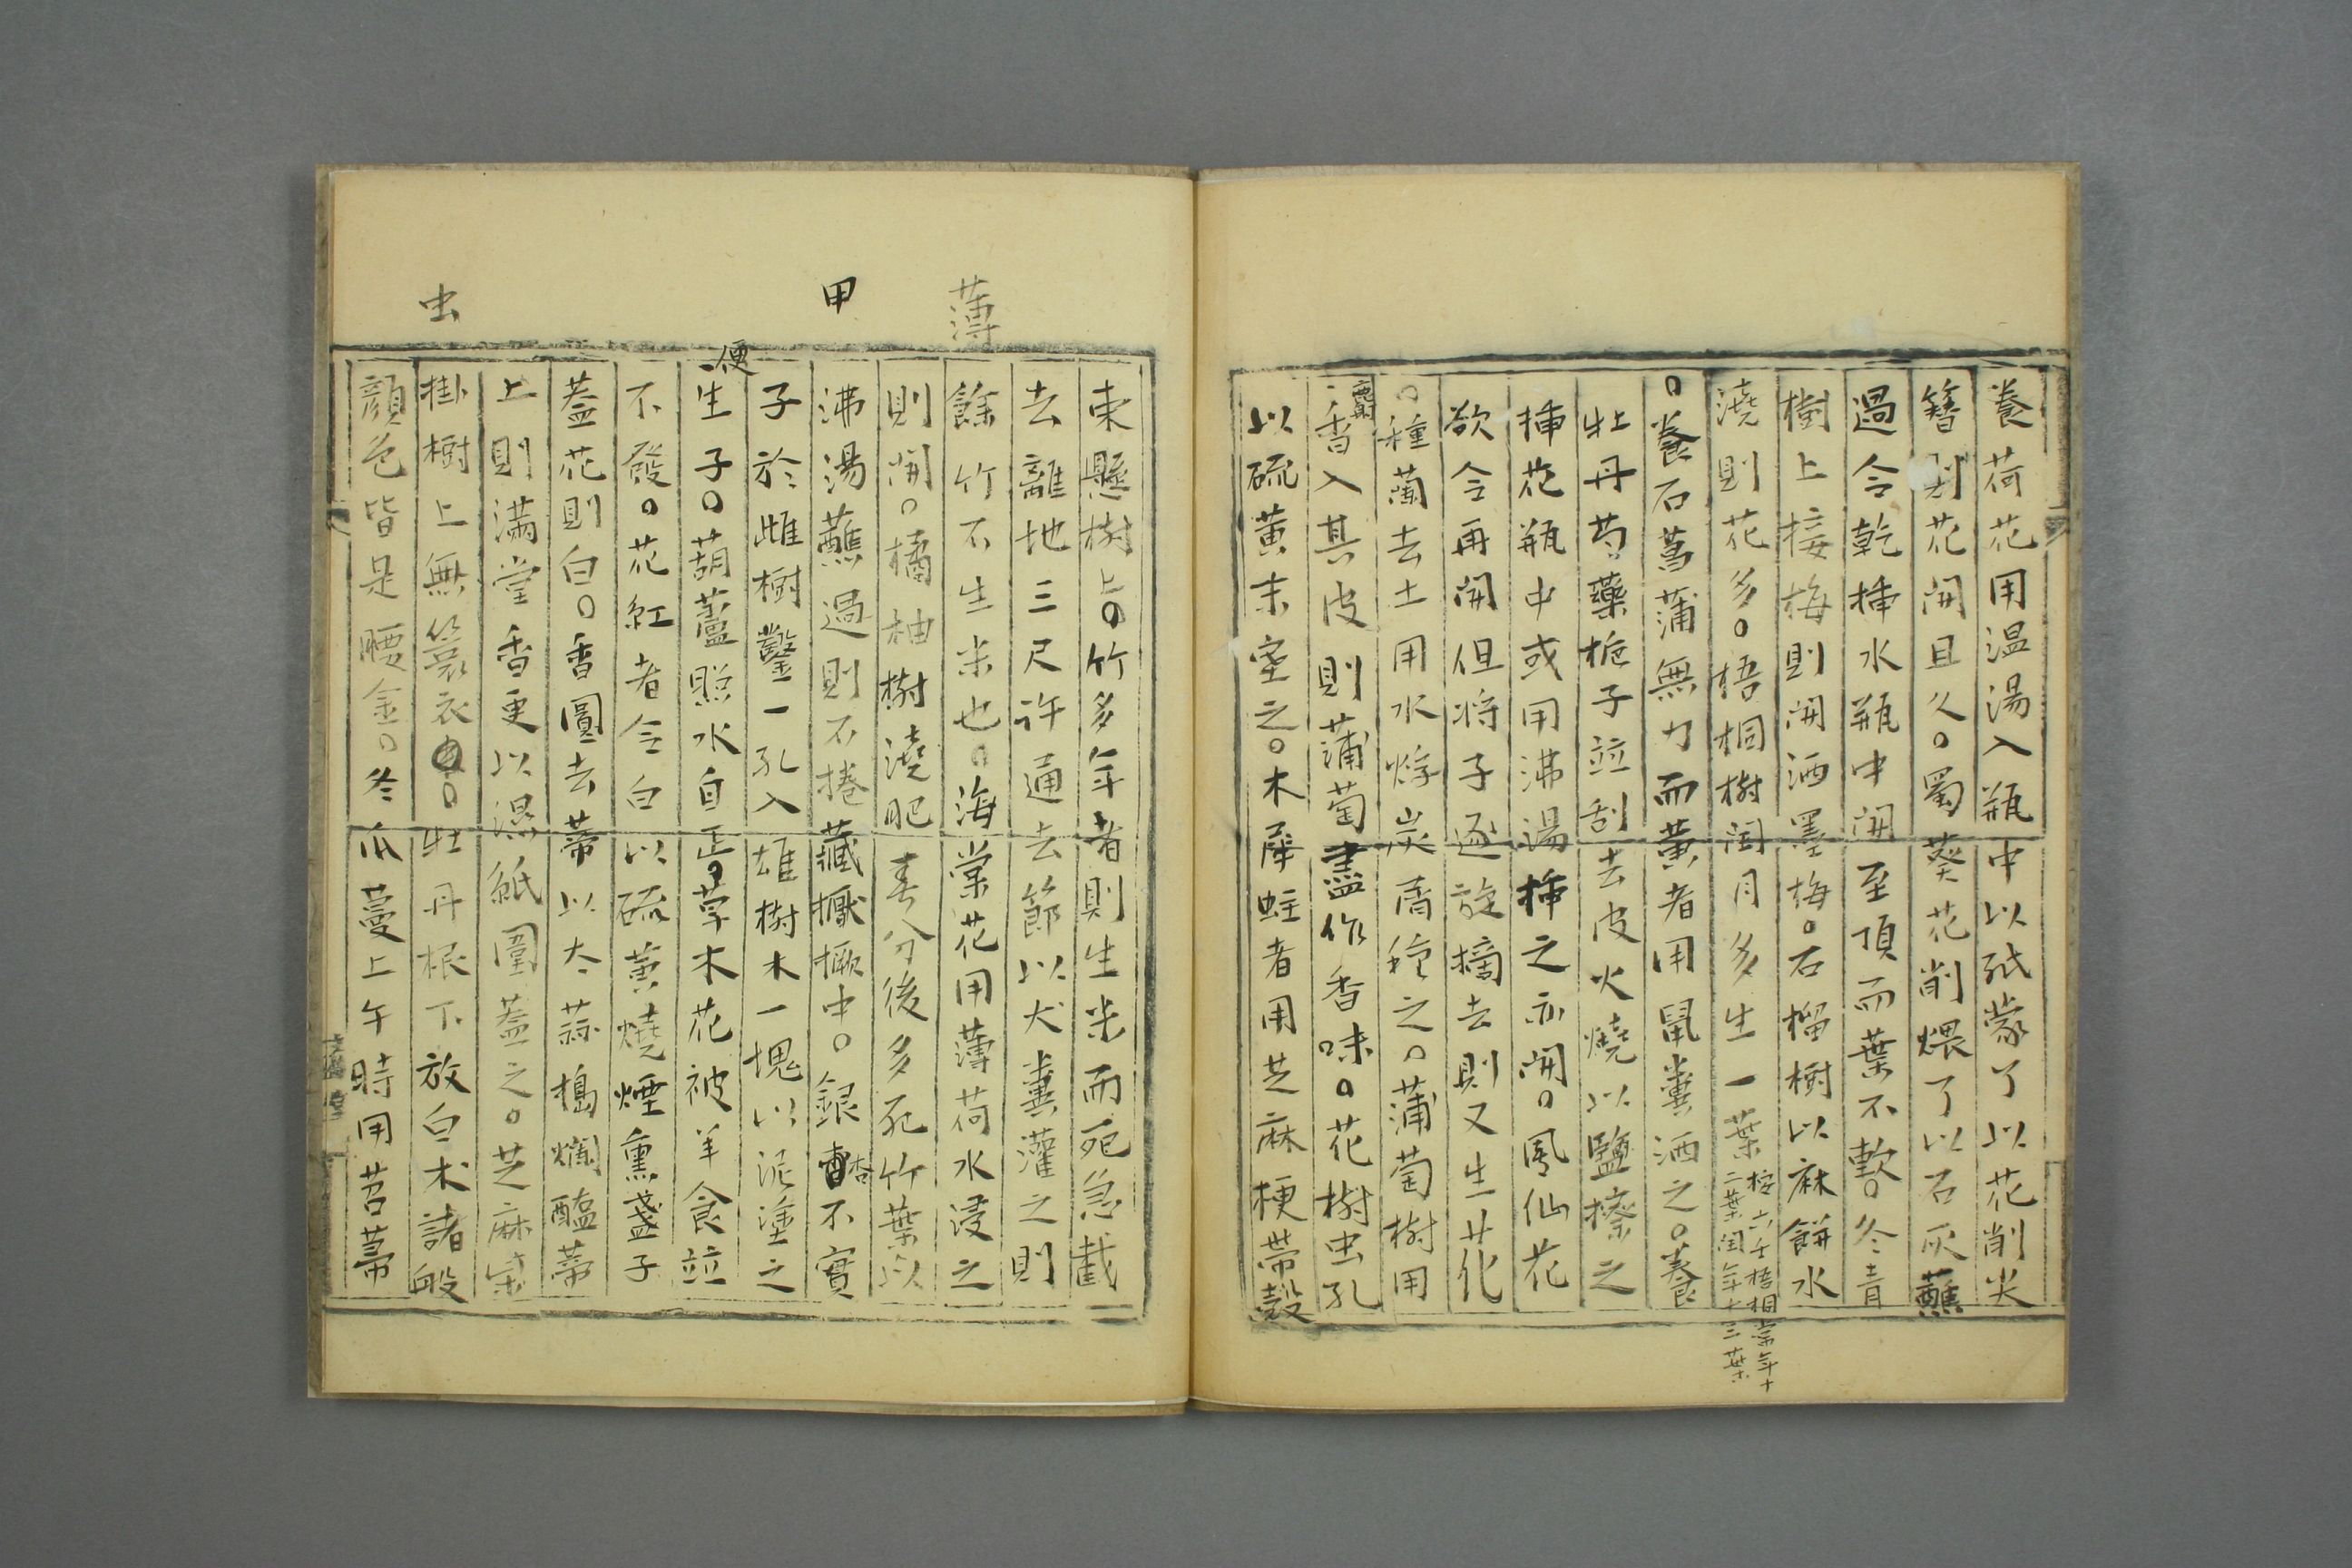 養荷花用温湯入瓶中以紙蒙了以花削尖
簪則花開且久。蜀葵花削煨了以石灰蘸
過令乾揷水瓶中開至頂而葉不軟。冬青
樹上接梅則開洒墨梅。石榴樹以麻餠水
澆則花多。梧桐樹閏月多生一葉
按六壬梧桐常年十
二葉閏年十三葉
。養石菖蒲無力而黃者用鼠糞洒之。養
牡丹芍藥梔子竝刮去皮火燒以鹽擦之
揷花瓶中或用沸湯揷之亦開。鳳仙花
欲令再開但將子逐旋摘去則又生花
。種蘭去土用水焠炭屑種之。蒲萄樹用
麝香入其皮則蒲萄盡作香味。花樹虫孔
以硫黃末窒之。木犀蛀者用芝麻梗帶殼
束懸樹上。竹多年者則生米而死急截
去離地三尺許通去節以犬糞灌之則
餘竹不生米也。海棠花用薄荷水浸之
則開。橘柚樹澆肥春分後多死竹葉以
沸湯蘸過則不捲藏橛橛中。銀杏不實
子於雌樹鑿一孔入雄樹木一塊以泥塗之
便
生子。葫蘆照水自正。草木花被羊食竝
不發。花紅者令白以硫黃燒煙熏盞子
蓋花則白。香圓去蒂以大蒜搗爛醯蒂
上則滿堂香更以濕紙圍蓋之。芝麻
掛樹上無簑衣。牡丹根下放白朮諸般
顔色皆是腰金。冬瓜蔓上午時用苕蒂
薄
甲
虫